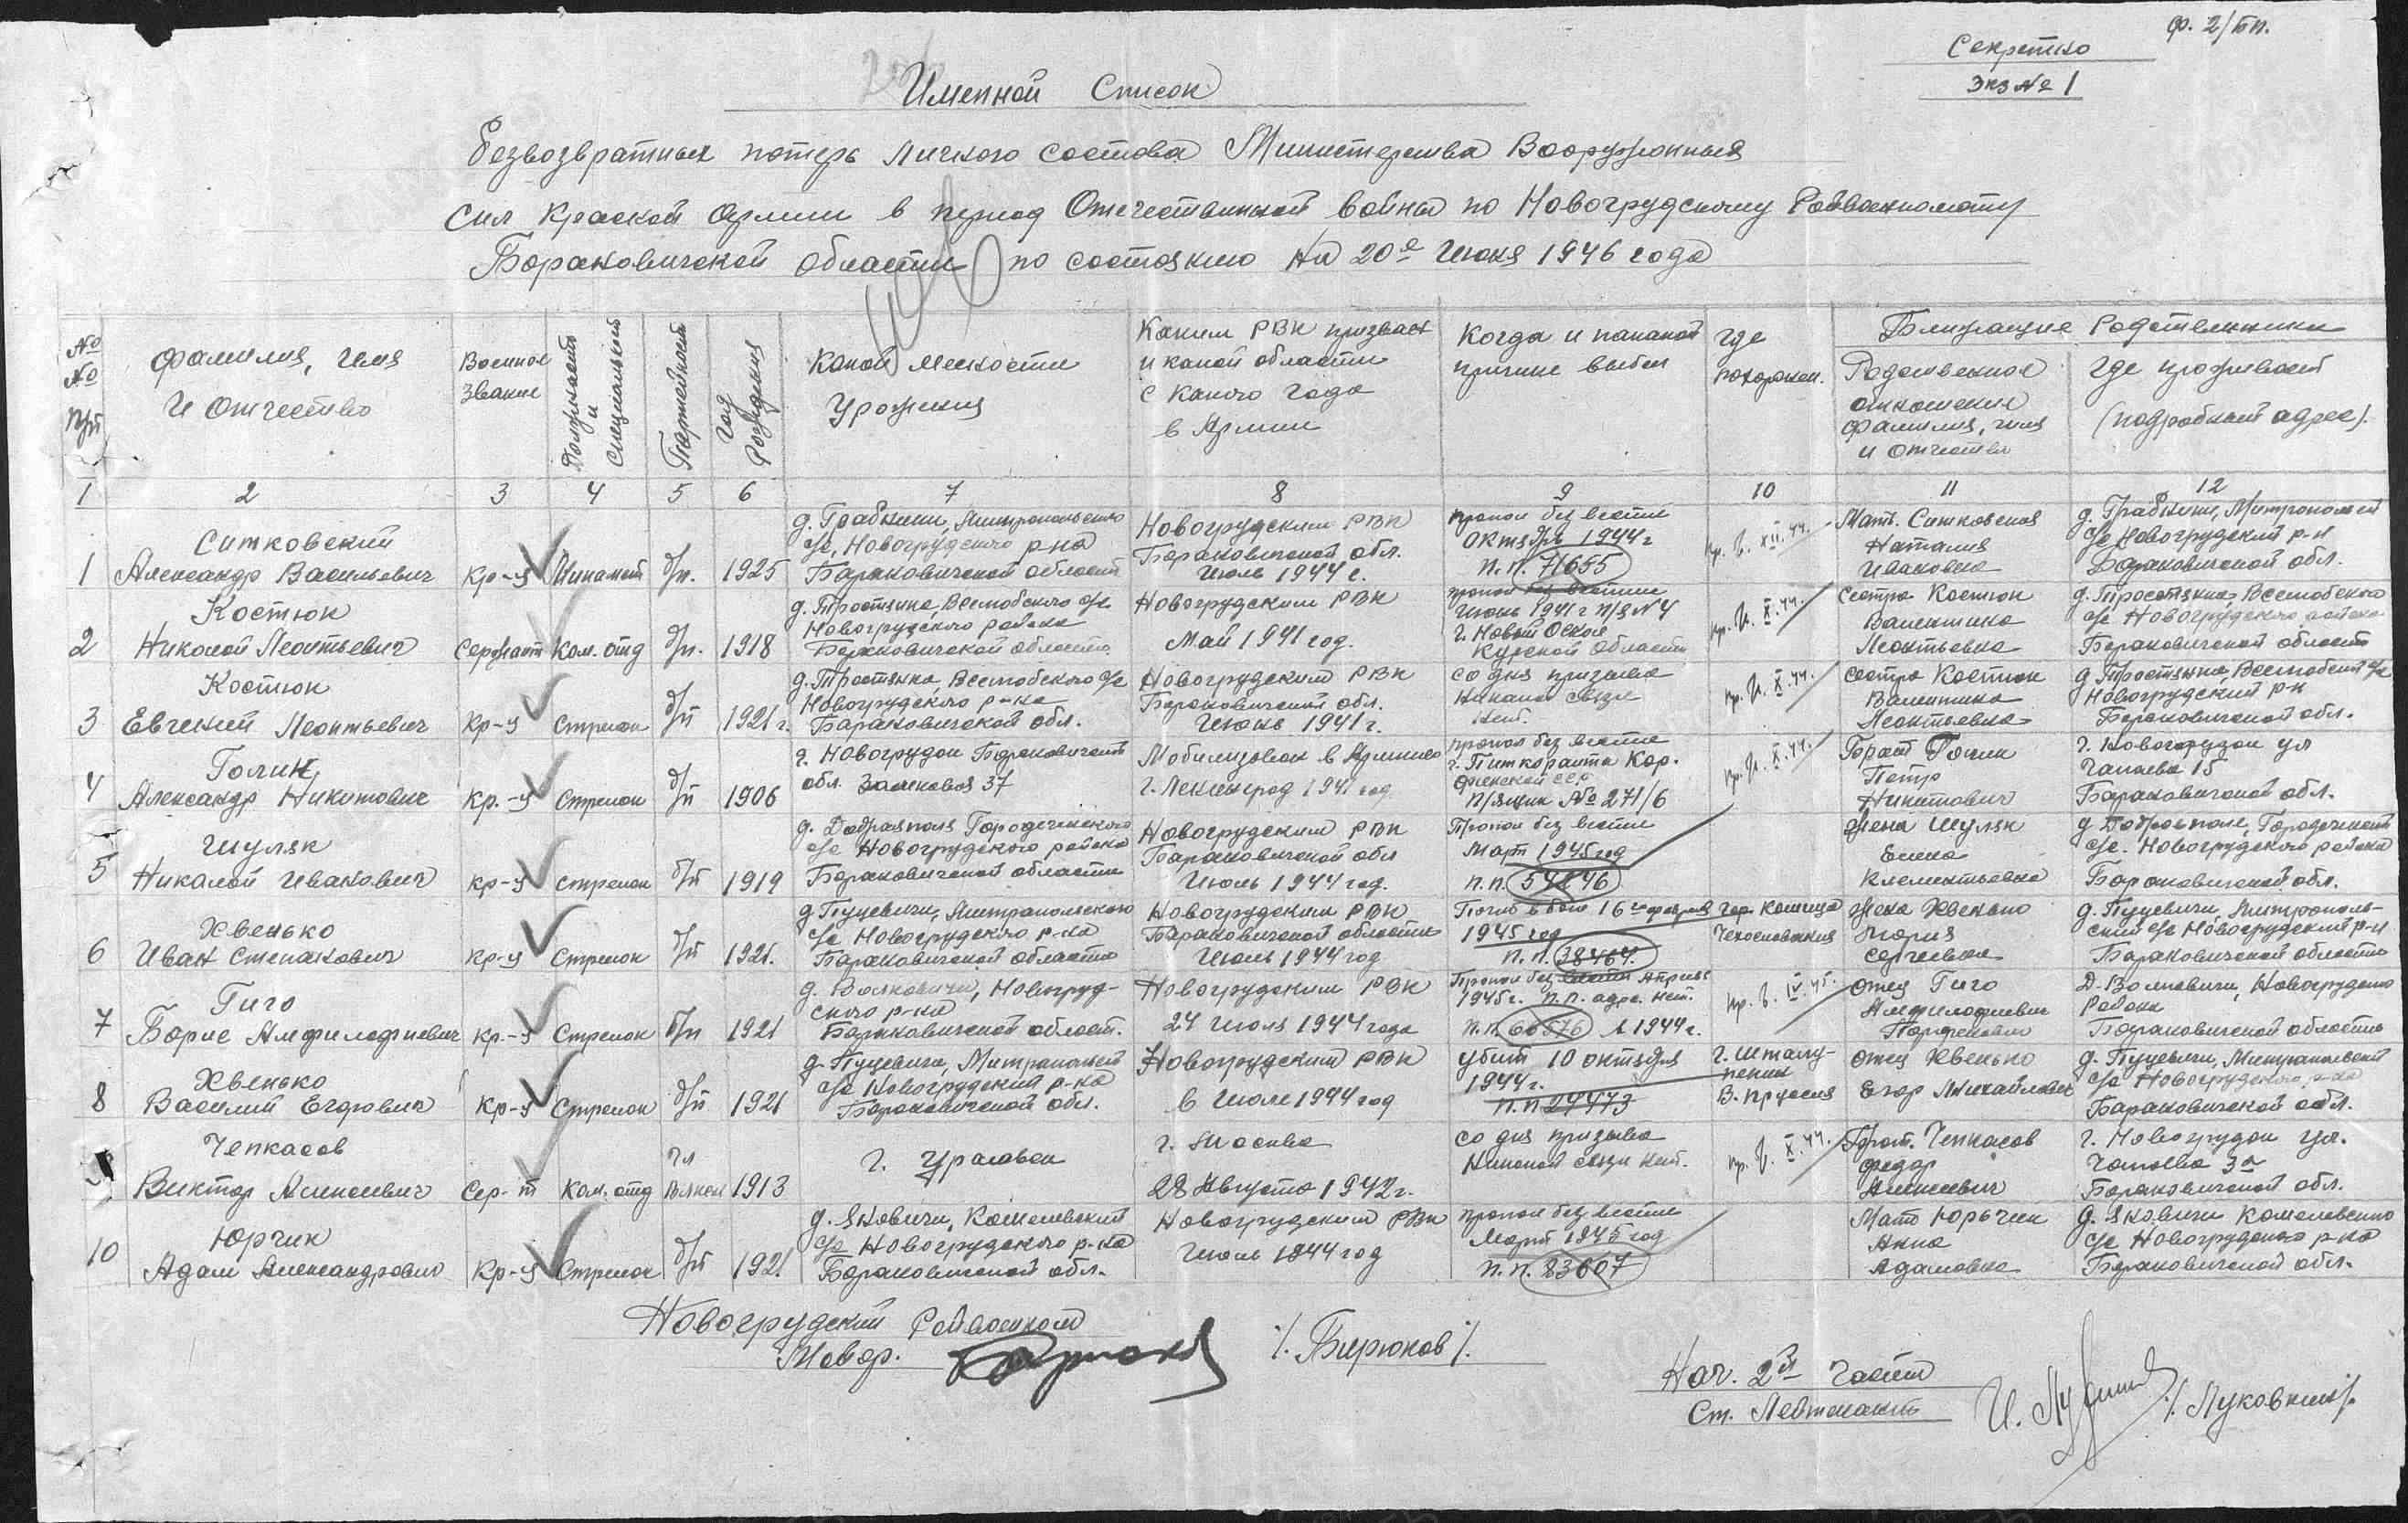 ф. 2/БП.
Секретно
Экз № 1
Именной Список
безвозвратных потерь личного состава Министерства Вооруженных
Сил Красной Армии в период Отечественной войны по Новогрудскому Райвоенкомату
Барановичской области по состоянию на 20е Июня 1946 года
№ № п/п
Фамилия, Имя И Отчество
Военное звание
Должность и специальность
Партейность
Год Рождения
Какой местности Урожения
Каким РВК призван и какой области с какого года в Армии
Когда и по какой причине выбыл
Где похоронен.
Ближайшие Родственники
Родственное отношение фамилия, имя и отчество
Где проживает (подробный адрес).
1 2 3 4 5 6 7 8 9 10 11 12
1
Ситковский
Александр Васильевич
Кр-ц
б/п.
1925
д. Грабники, Митропольского
с/с, Новогрудского р-на
Барановичской области
Новогрудским РВК
Барановичской обл.
Июль 1944 г.
пропал без вести
октябрь 1944 г
п.п. 71655
пр. б. XII. 44.
Мать. Ситковская
Наталия
Ивановна
д. Грабники, Митропольский
с/с Новогрудский р-н
Барановичской обл.
2
Костюк
Николай Леонтьевич
Сержант
Ком. отд
б/п.
1918
д. Тростянка, Вселюбского с/с
Новогрудского района
Барановичской области.
Новогрудским РВК
Май 1941 год.
пропал без вести
Июнь 1941 г п/я № 4
г. Новый Оскол
Курской области
пр. И. X. 44.
сестра Костюк
Валентина
Леонтьевна
д. Тростянка, Вселюбского
с/с Новогрудского района
Барановичской области
3
Костюк
Евгений Леонтьевич
Кр-ц
Стрелок
б/п
1921 г.
д. Тростянка, Вселюбского с/с
Новогрудского р-на
Барановичской обл.
Новогрудским РВК
Барановичской обл.
Июнь 1941 г.
со дня призыва
никакой связи
нет.
пр. И. X. 44.
сестра Костюк
Валентина
Леонтьевна
д. Тростянка, Вселюбский с/с
Новогрудский р-н
Барановичской обл.
4
Голик
Александр Никитович
Кр.-ц
Стрелок
б/п
1906
г. Новогрудок Барановичской
обл. Замковая 37
Мобилизован в Армию
г. Ленинград 1941 год
пропал без вести
г. Питкоранта Кар.
финской сср
п/ящик № 271/6
пр. И. X. 44.
Брат Голик
Петр
Никитович
г. Новогрудок ул
Чапаева 15
Барановичской обл.
5
Шуляк
Николай Иванович
кр-ц
стрелок
б/п
1919
д. Доброполе Городечненского
с/с Новогрудского района
Барановичской области
Новогрудским РВК
Барановичской обл
Июль 1944 год.
Пропал без вести
Март 1945 год
п.п.
Жена Шуляк
Елена
Клементьевна
д Доброполе, Городечненский
с/с. Новогрудского района
Барановичской обл.
6
Хвенько
Иван Степанович
кр-ц
Стрелок
б/п
1921.
д Пуцевичи, Митропольского
с/с Новогрудского р-на
Барановичской области
Новогрудским РВК
Барановичской области
Июль 1944 год
Погиб в бою 16го февраля
1945 год
п.п. 38464.
Чехословакия
Жена Хвенько
Мария
Сергеевна
д. Пуцевичи, Митрополь-
ский с/с Новогрудский р-н
Барановичской области
7
Гиго
Борис Амфилофиевич
Кр-ц
Стрелок
б/п
1921
д. Волковичи, Новогруд-
ского р-на
Барановичской област.
Новогрудским РВК
24 Июля 1944 года
Пропал без вести Апрель
1945 г. п.п. адрс. нет.
п.п. 66576 в 1944 г.
пр. б. IV. 45.
отец Гиго
Амфилофиевич
Д. Волковичи, Новогрудского
Района
Барановичской область
8
Хвенько
Василий Егорович
Кр-ц
Стрелок
б/п
1921
д. Пуцевичи, Митропольский
с/с Новогрудский р-на
Барановичской обл.
Новогрудским РВК
в Июле 1944 год
Убит 10 октября
1944 г.
п.п 27473
г. Шталу-
пенен
В. Пруссия
отец Хвенько
Егор Михайлович
д. Пуцевичи, Митропольский
с/с Новогрудского, р-на
Барановичской обл.
9
Чепкасов
Виктор Алексеевич
Сер-т
Ком. отд
чл
1913
г. Уральск
г. Москва
28 Августа 1942 г.
со дня призыва
Никакой связи нет.
пр. б. X. 44.
Брат. Чепкасов
Федор
Алексеевич
г. Новогрудок ул.
Чапаева 3а
Барановичской обл.
10
Юрчик
Адам Александрович
Кр-ц
Стрелок
б/п
1921
д. Яновичи, Кошелевский
с/с Новогрудского р-на
Барановичской обл.
Новогрудским РВК
Июль 1844 год
Пропал без вести
март 1945 год
п.п. 83607
Мать Юрьчик
Анна
Адамовна
д. Яновичи Кошелевского
с/с Новогрудского р-на
Барановичской обл.
Новогрудский Райвоенком
Майор. /. Бирюков /.
Нач. 2й части
Ст. Лейтенант /. Луковкин /.